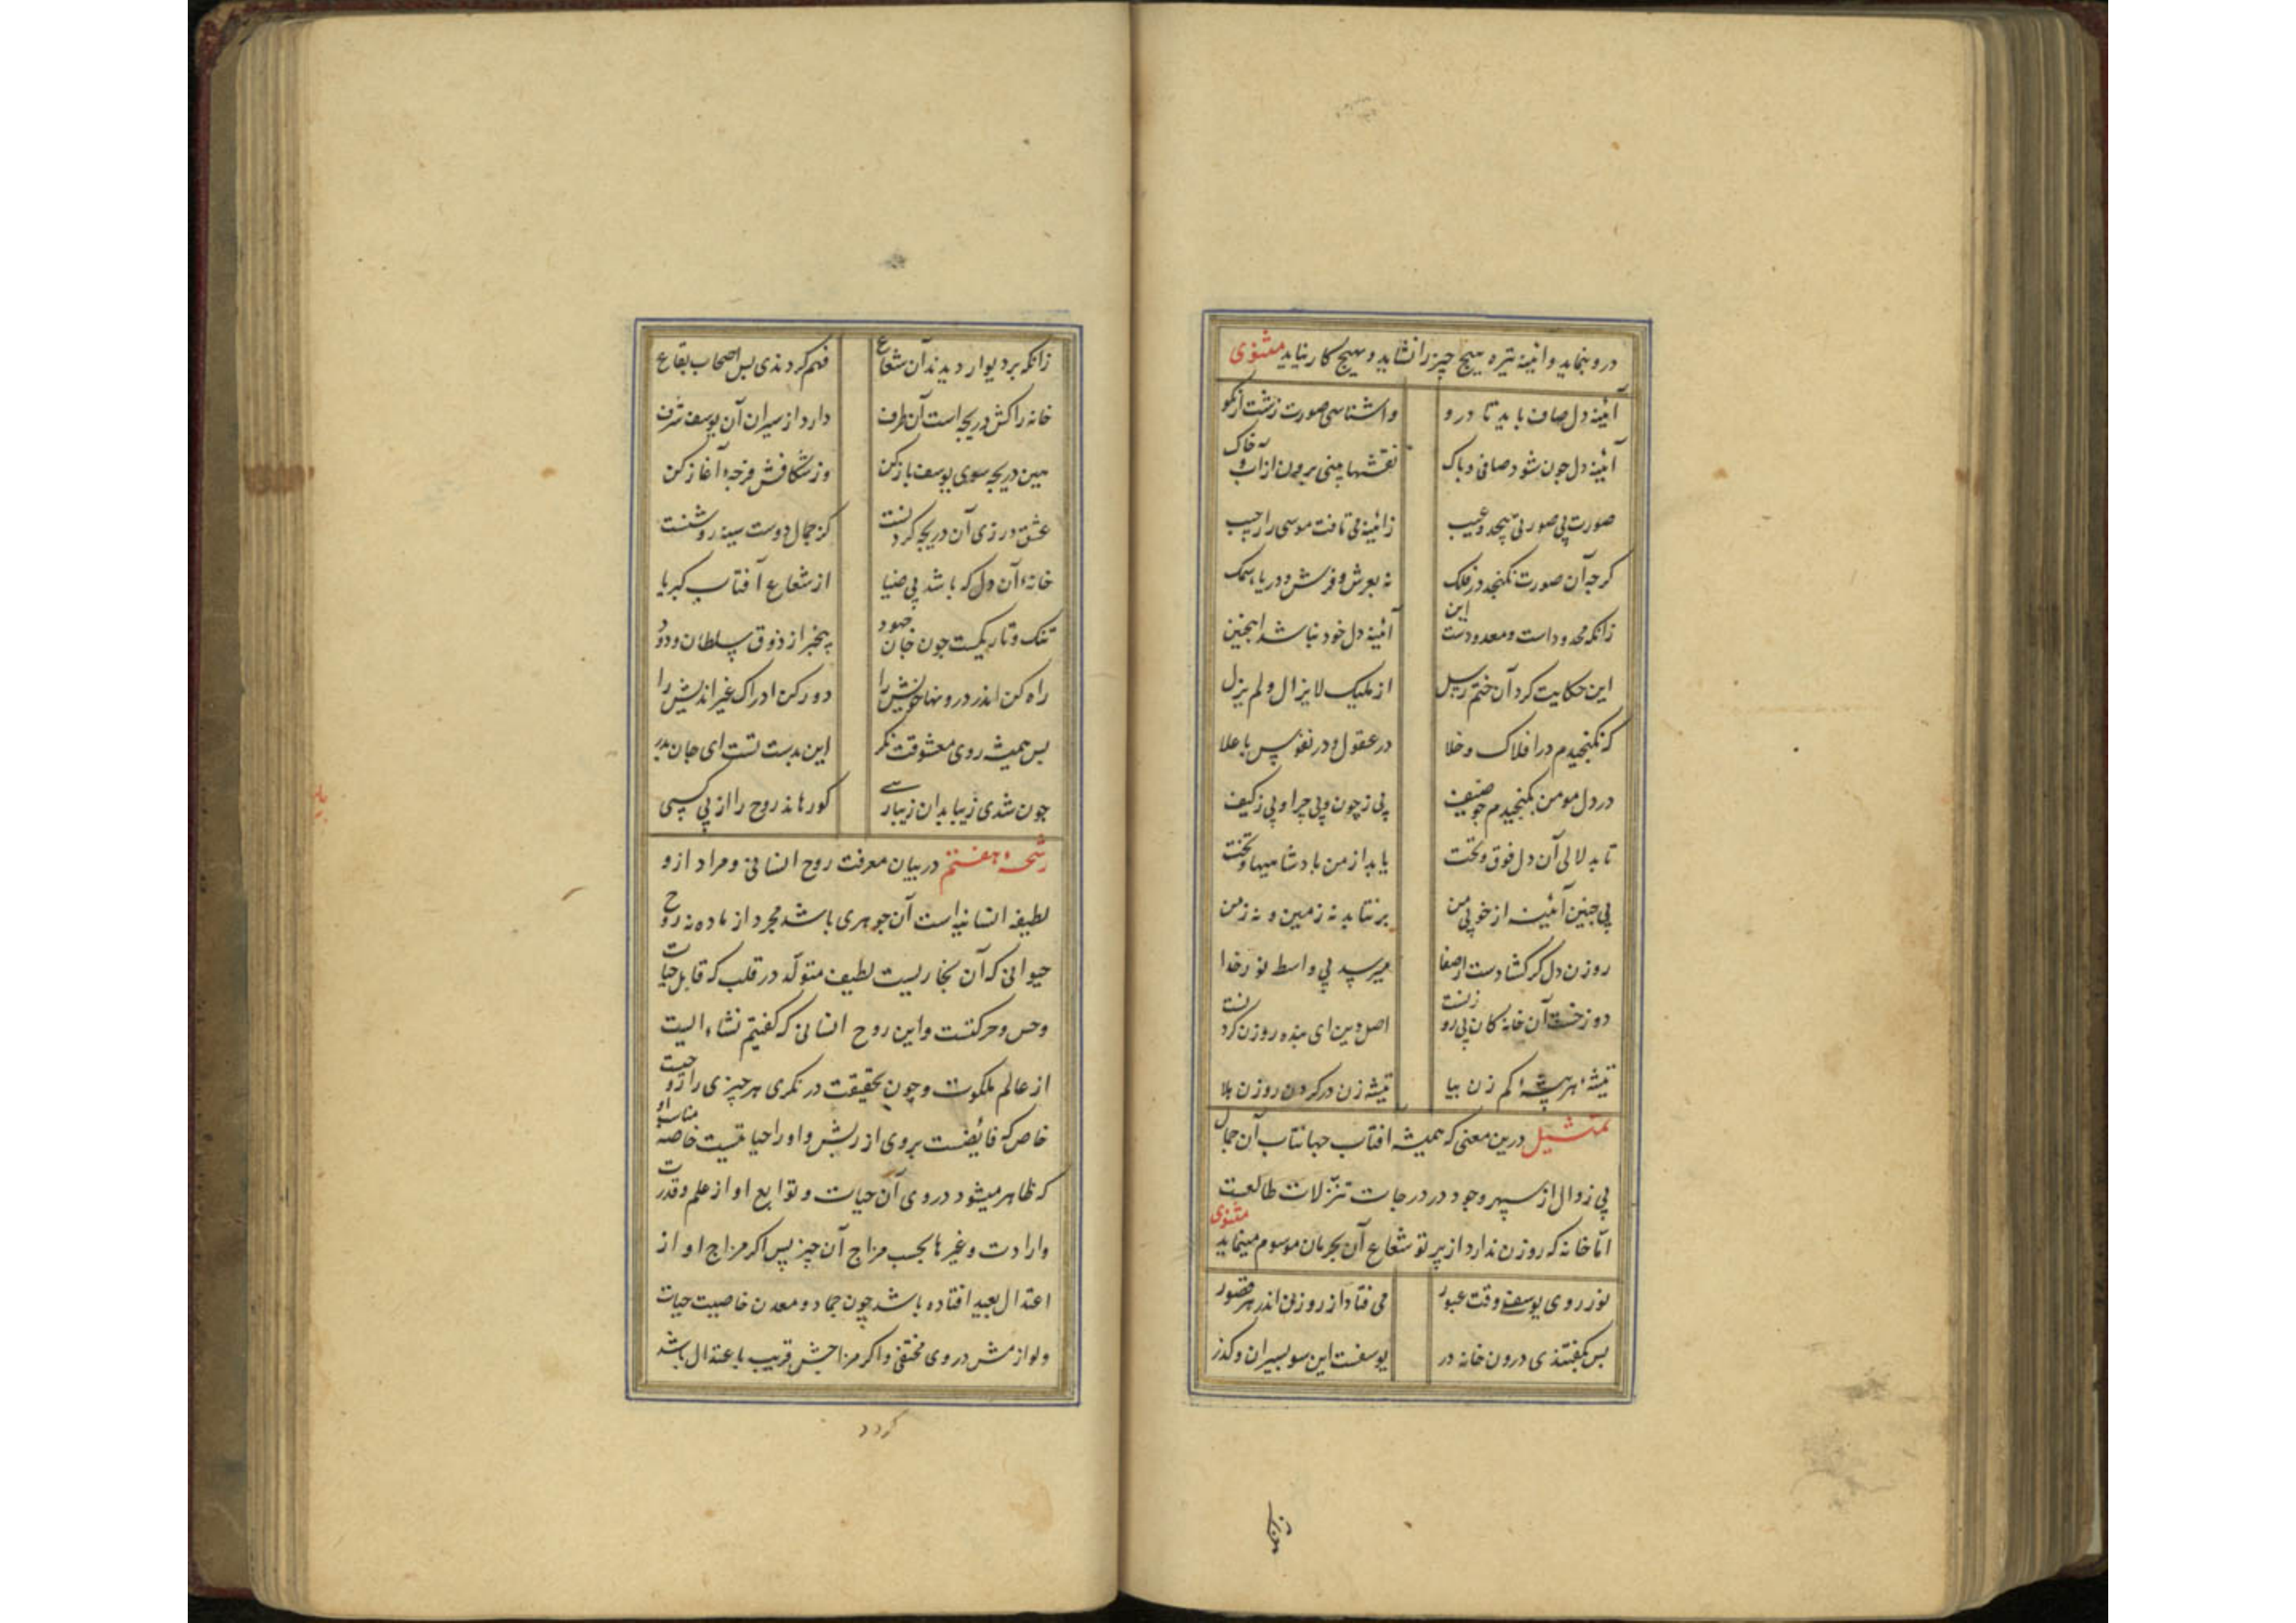 درو بنماید و آئینه تیره هیچ چیز را نشاید و هیچ کار نیاید مثنوی
آئینه دل صاف باید تا درو واشناسی صورت زشت از نکو
آئینه دل چون شود صافی و پاک نقشها بینی برون از آب و خاک
صورت بی صورتی بیحد و عیب ز ائینه می تافت موسی را ز جیب
کرچه آن صورت نکنجد در فلک نه بعرش و فرش و دریا و سمک
زانکه محدود است و معدودست این آئینه دل خود نباشد اینچنین
این حکایت کرد آن ختم رسل از ملیک لایزال و لم یزل
که نکنجیدم در افلاک و خلا در عقول و در نفوس با علا
در دل مومن بکنجیدم چو ضیف بی ز چون و بی چرا و بی ز کیف
تا بدلالی آن دل فوق و تحت یابد از من پادشاهیها و تخت
بی چنین آئینه از خوبی من برنتابد نه زمین و نه زمن
روزن دل کر کشادست از صفا میرسد بی واسط نور خدا
دوزخست آن خانه کان بی روزنست اصل دین ای بنده روزن کردنست
تیشه هر بیشه کم زن بیا تیشه زن در کردن روزن هلا
تمثیل درین معنی که همیشه افتاب جهانتاب آن جمال
بی زوال از سپهر وجود در درجات تنزلات طالعست
امّا خانه که روزن ندارد از پرتو شعاع آن بحرمان موسوم مینماید مثنوی
نور روی یوسفی وقت عبور می فتاد از روزن اندر هر قصور
پس بکفتندی درون خانه در یوسفست این سو بسیران و کذر
زانکه بر دیوار دیدند آن شعاع فهم کردندی پس اصحاب بقاع
خانه را کش دریچه است آن طرف دارد از سیران آن یوسف شرف
هین دریچه سوی یوسف باز کن وز شکافش فرجه آغاز کن
عشق ورزی آن دریچه کردنست کز جمال دوست سینه روشنست
خانه آن دل که باشد بی ضیا از شعاع آفتاب کبریا
تنک و تاریکست چون جان جهود بیخبر از ذوق سلطان ودود
راه کن اندر درونها خویش را دور کن ادراک غیر اندیش را
پس همیشه روی معشوقت نکر این بدست تست ای جان پدر
چون شدی زیبا بدان زیبا رسی کو رهاند روح را از بی کسی
رشحه هفتم در بیان معرفت روح انسانی و مراد ازو
لطیفه انسانیه است آن جوهری باشد مجرد از ماده نه روح
حیوانی که آن بخاریست لطیف متولّد در قلب که قابل حیات
و حس و حرکتست و این روح انسانی که کفتیم نشاء الیت
از عالم ملکوت و چون بحقیقت در نکری هر چیزی را روحیست
خاص که فائضست بروی از ربش و او را حیاتیست خاصه مناسب او
که ظاهر میشود در وی آن حیات و توابع او از علم و قدرت
و ارادت و غیرها بحسب مزاج آن چیز پس اکر مزاج او از
اعتدال بعید افتاده باشد چون جماد و معدن خاصیت حیات
و لوازمش در وی مختفی و اکر مزاجش قریب باعتدال باشد
کردد